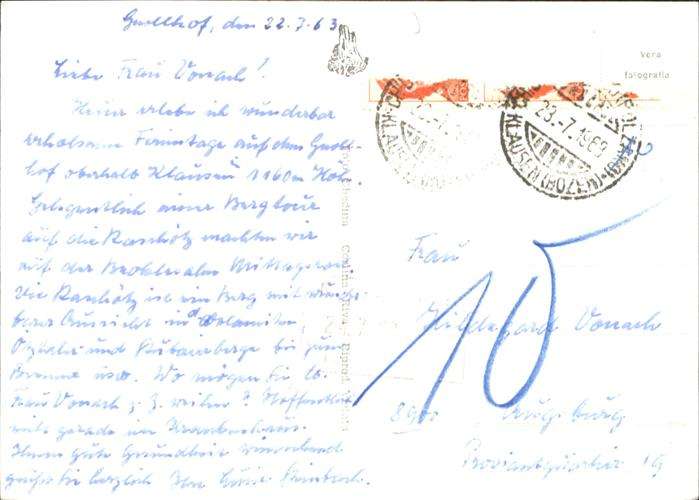 Gnollhof, den 22.7.63
Liebe Frau Vonach!
Heuer erlebe ich wunderbar
erholsame Ferientage auf dem Gnoll-
hof oberhalb Klausen 1160m Höhe.
Gelegentlich einer Bergtour
auf die Raschötz machten wir
auf der Brogleralm Mittagsrast.
Die Raschötz ist ein Berg mit wunder-
barer Aussicht in Dolomiten,
Ötztaler und Stubaierberge bis zum
Brenner usw. Wo mögen Sie lb.
Frau Vonach z. Z. weilen? Hoffentlich
nicht gerade im Krankenhaus.
Ihnen gute Gesundheit wünschend
grüßt Sie herzlich Ihre
Vera
fotografia
23.-7.1963
KLAUSEN
10
Frau
Hildegard Vonach
8900 Augsburg
Proviantquartier